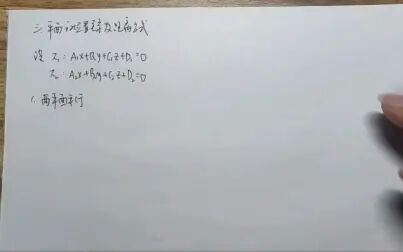 三.平面的位置关系及距离公式
设 π₁: A₁x+B₁y+C₁z+D₁=0
π₂: A₂x+B₂y+C₂z+D₂=0
1. 两平面平行